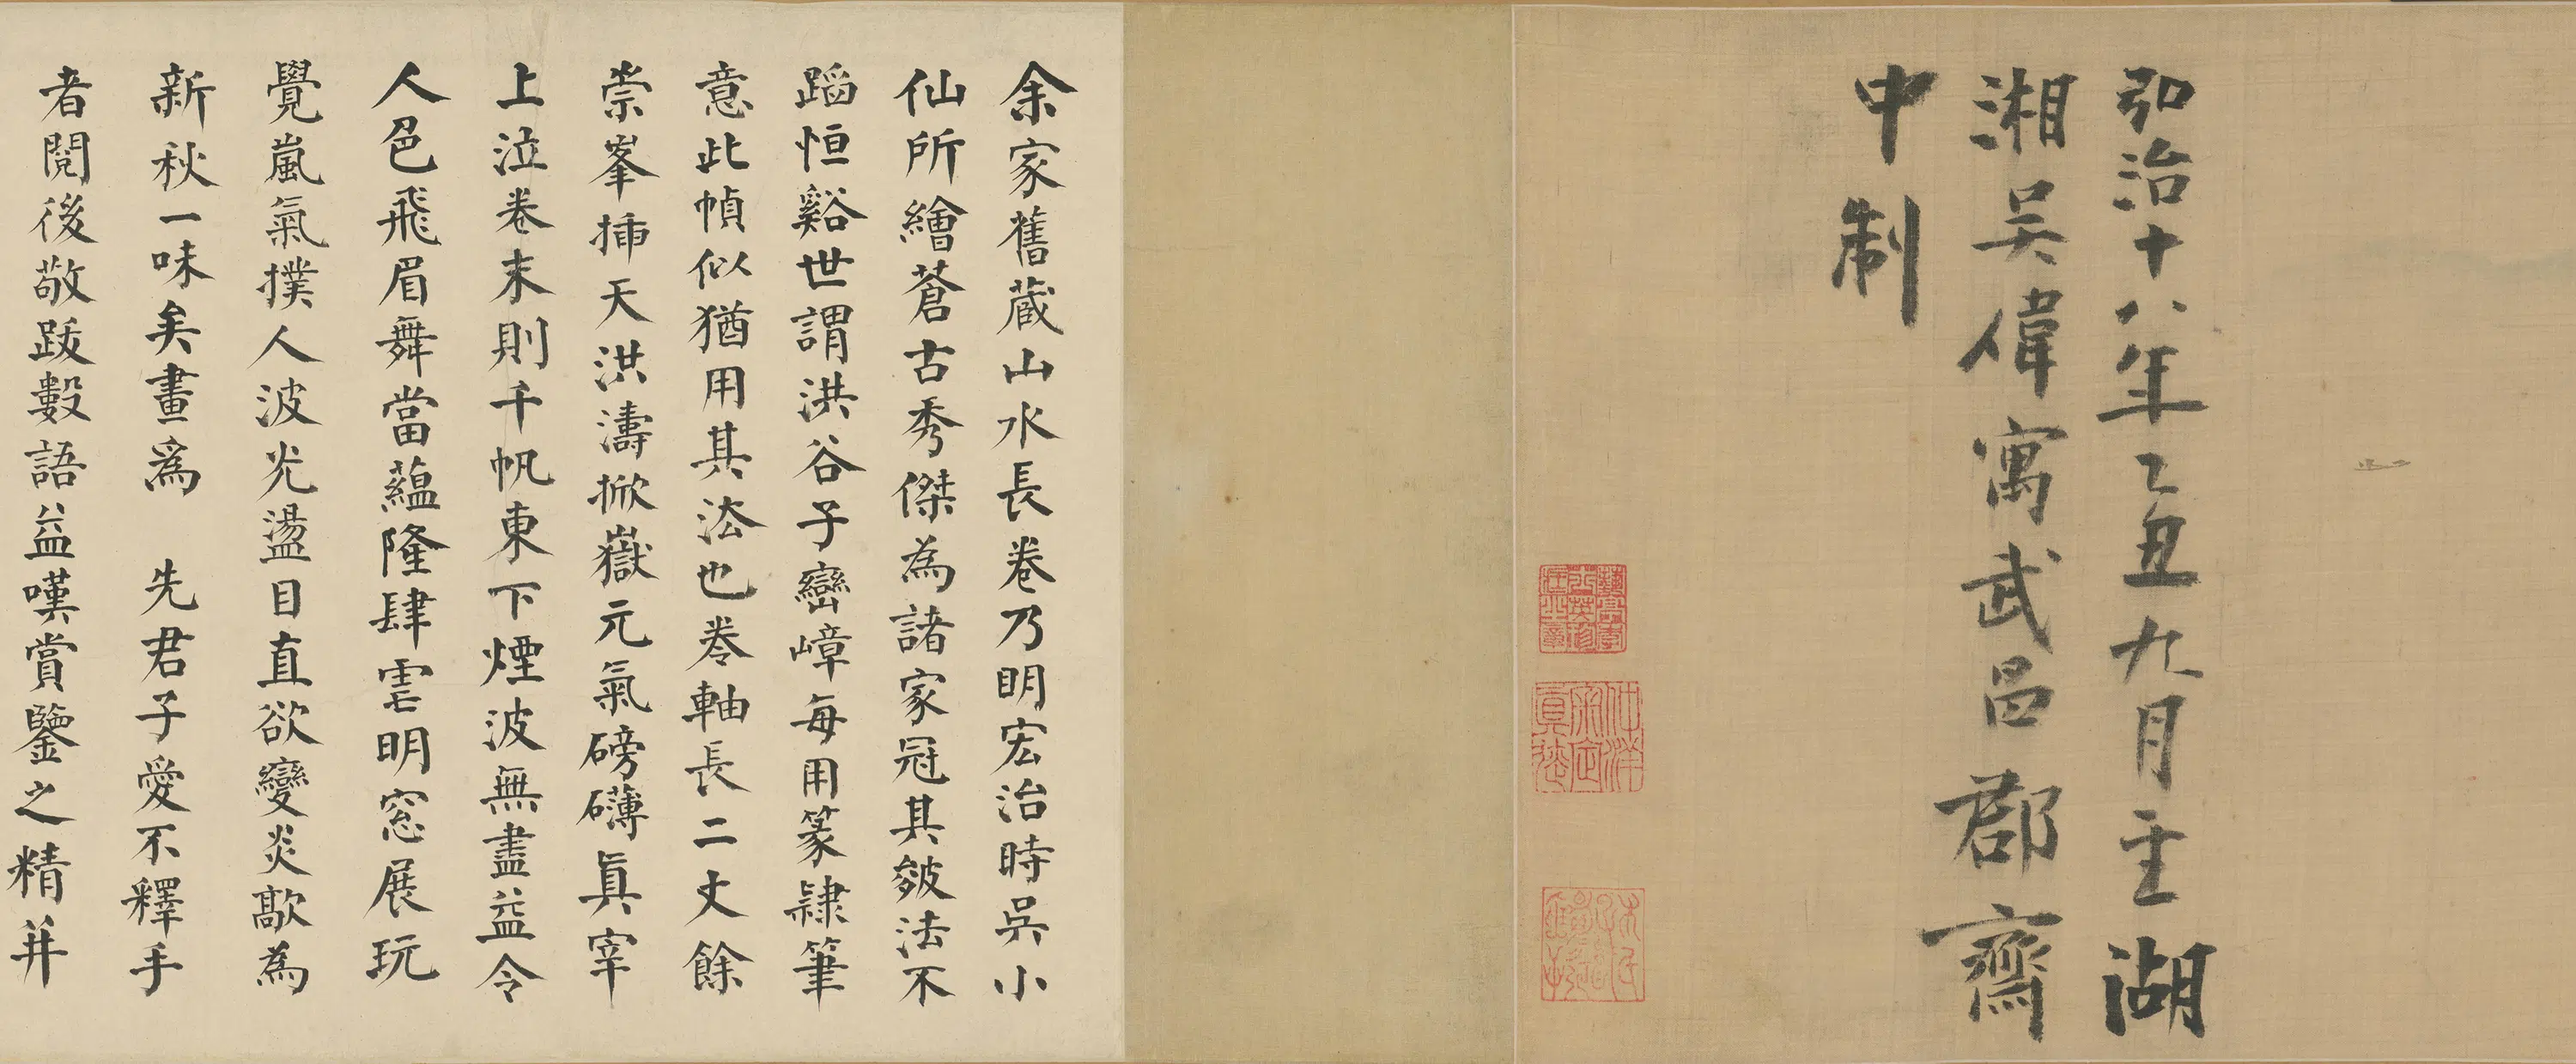 弘治十八年乙丑九月主湖
湘吴偉寓武昌郡齋
中制
余家舊蔵山水長卷乃明宏治時吳小
仙所繪蒼古秀傑為諸家冠其皴法不
蹈恒谿世謂洪谷子巒嶂每用篆隸筆
意此幀似猶用其法也卷軸長二丈餘
崇峯插天洪濤掀嶽元氣磅礴真宰
上泣卷末則千帆東下煙波無盡益令
人色飛眉舞當蘊隆肆雩明窓展玩
覺嵐氣撲人波光盪目直欲變炎歊為
新秋一味矣畫爲 先君子愛不釋手
者閱後敬跋數語益嘆賞鑒之精并